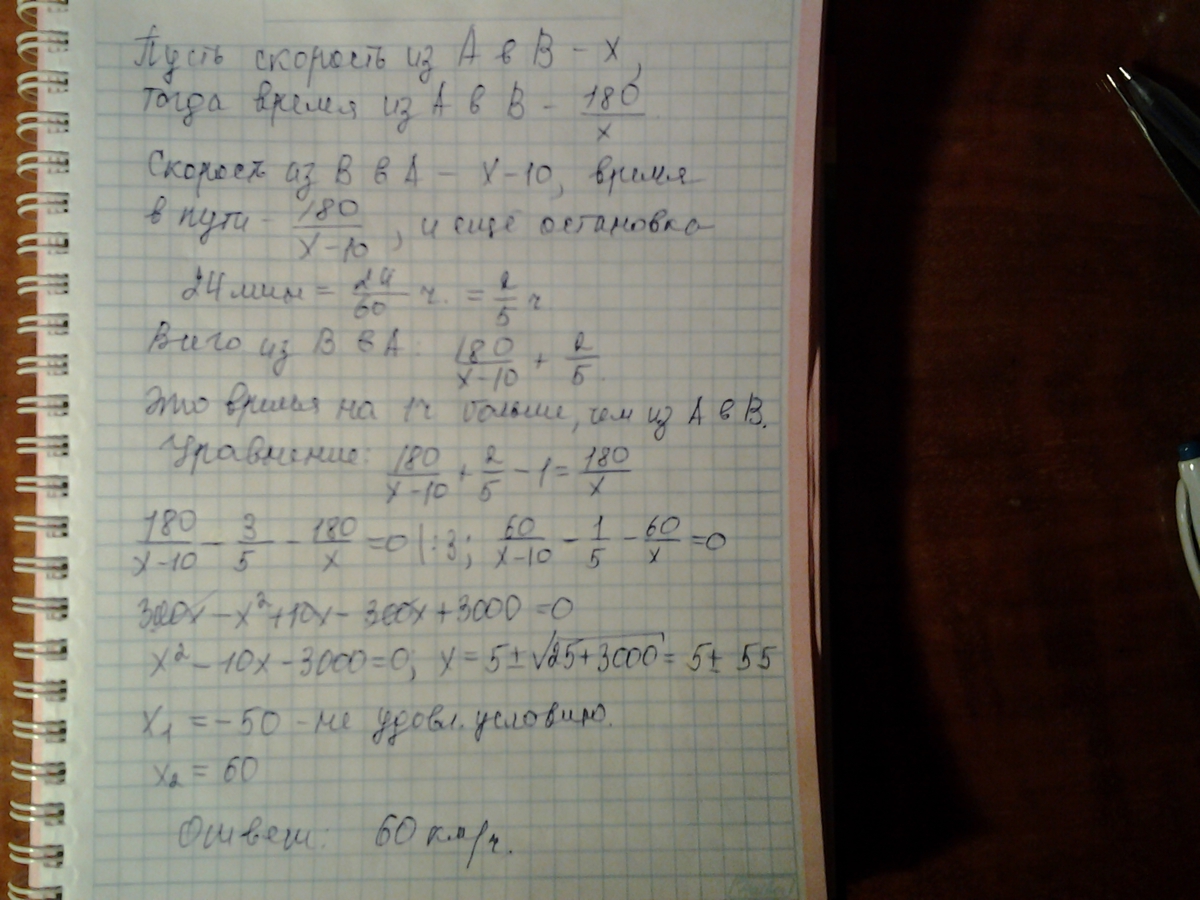 Пусть скорость из А в В – x,
тогда время из А в В – 180/x.
Скорость из В в А – x–10, время
в пути – 180/(x–10), и ещё остановка
24 мин = 24/60 ч. = 2/5 ч
Всего из В в А: 180/(x–10) + 2/5.
Это время на 1ч больше, чем из А в В.
Уравнение: 180/(x–10) + 2/5 – 1 = 180/x
180/(x–10) – 3/5 – 180/x = 0 |:3; 60/(x–10) – 1/5 – 60/x = 0
300x – x² + 10x – 300x + 3000 = 0
x² – 10x – 3000 = 0; x = 5 ± √(25+3000) = 5 ± 55
x₁ = –50 – не удовл. условию.
x₂ = 60
Ответ: 60 км/ч.